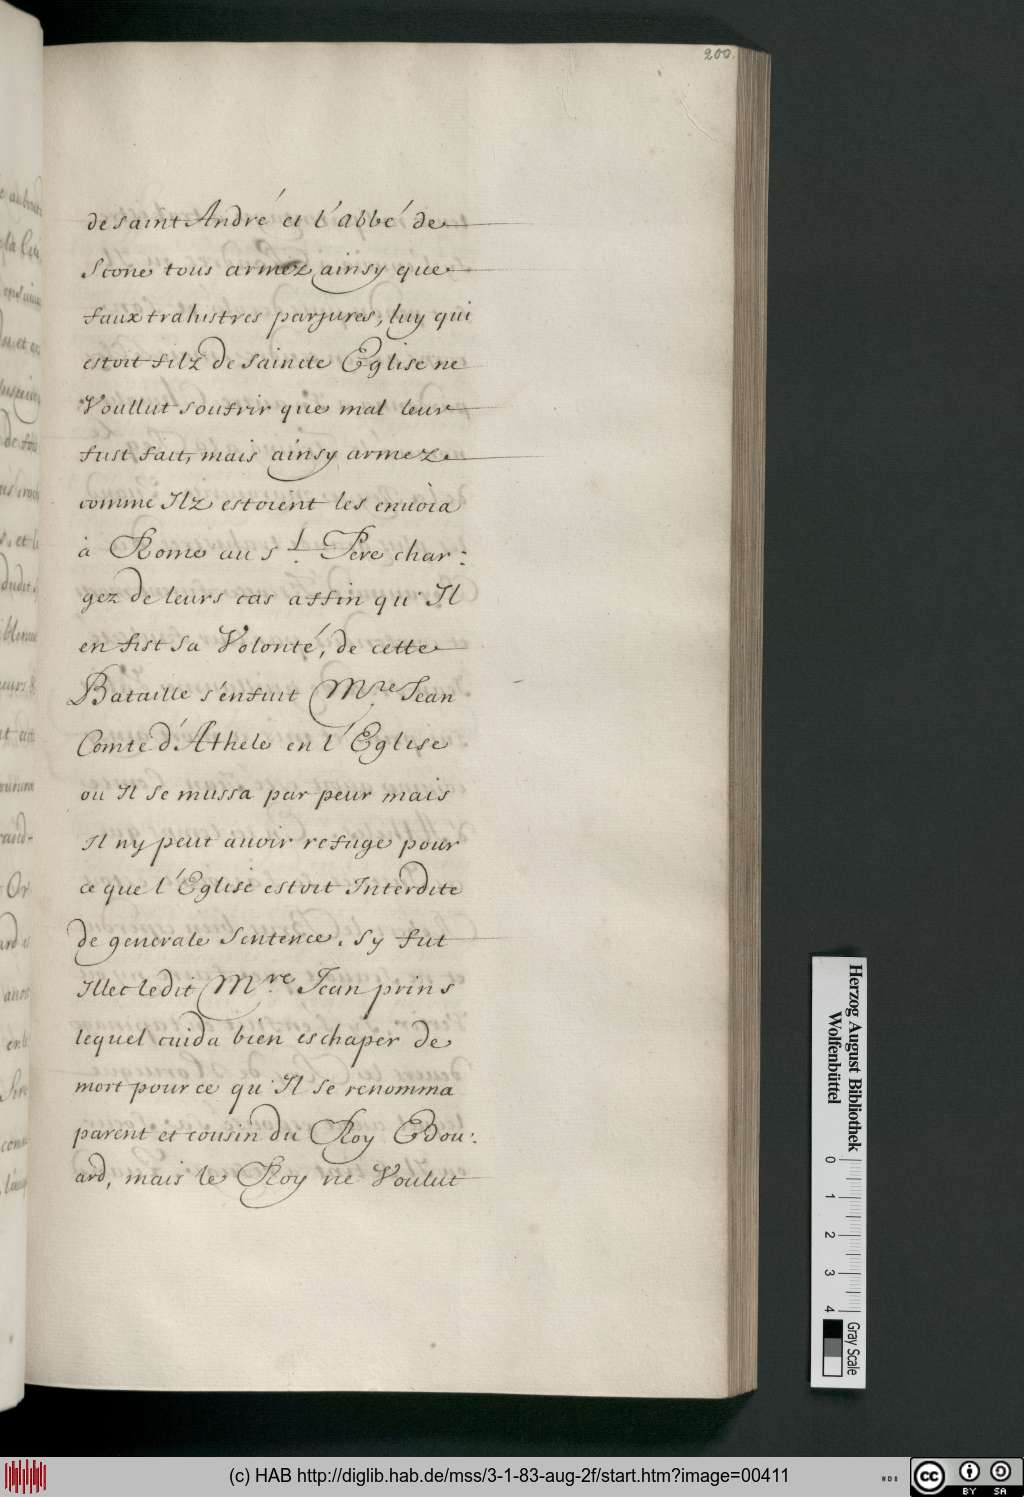 200.
de saint André et l'abbé de
Scone tous armez ainsy que
faux trahistres parjures, luy qui
estoit filz de saincte Eglise ne
Voullut soufrir que mal leur
fust fait, mais ainsy armez
comme Ilz estoient les enuoia
à Rome au st. Pere char:
gez de leurs cas affin qu'Il
en fist sa Volonté, de cette
Bataille s'enfuit Mre. Jean
Comte d'Athele en l'Eglise
ou Il se mussa par peur mais
Il ny peut auoir refuge pour
ce que l'Eglise estoit Interdite
de generale Sentence. Sy fut
Illec ledit Mre. Jean prins
lequel cuida bien eschaper de
mort pour ce qu'Il se renomma
parent et cousin du Roy Edou:
ard, mais le Roy ne Voulut
Herzog August Bibliothek
Wolfenbüttel
0 1 2 3 4
Gray Scale
(c) HAB http://diglib.hab.de/mss/3-1-83-aug-2f/start.htm?image=00411
WDB
cc
BY SA